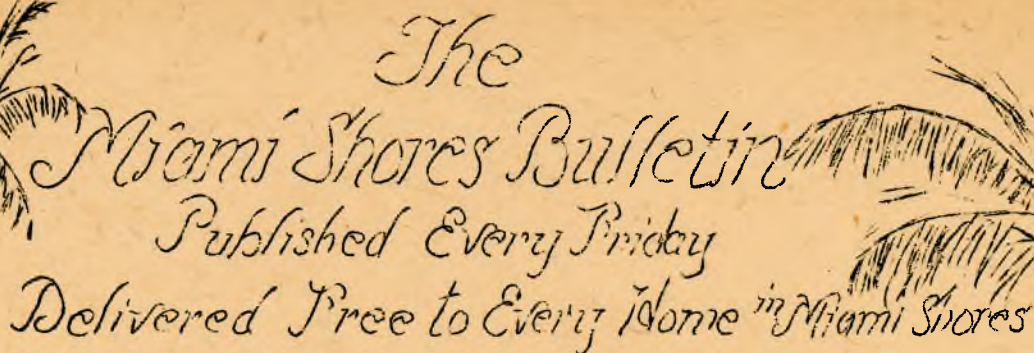 The
Miami Shores Bulletin
Published Every Friday
Delivered Free to Every Home in Miami Shores